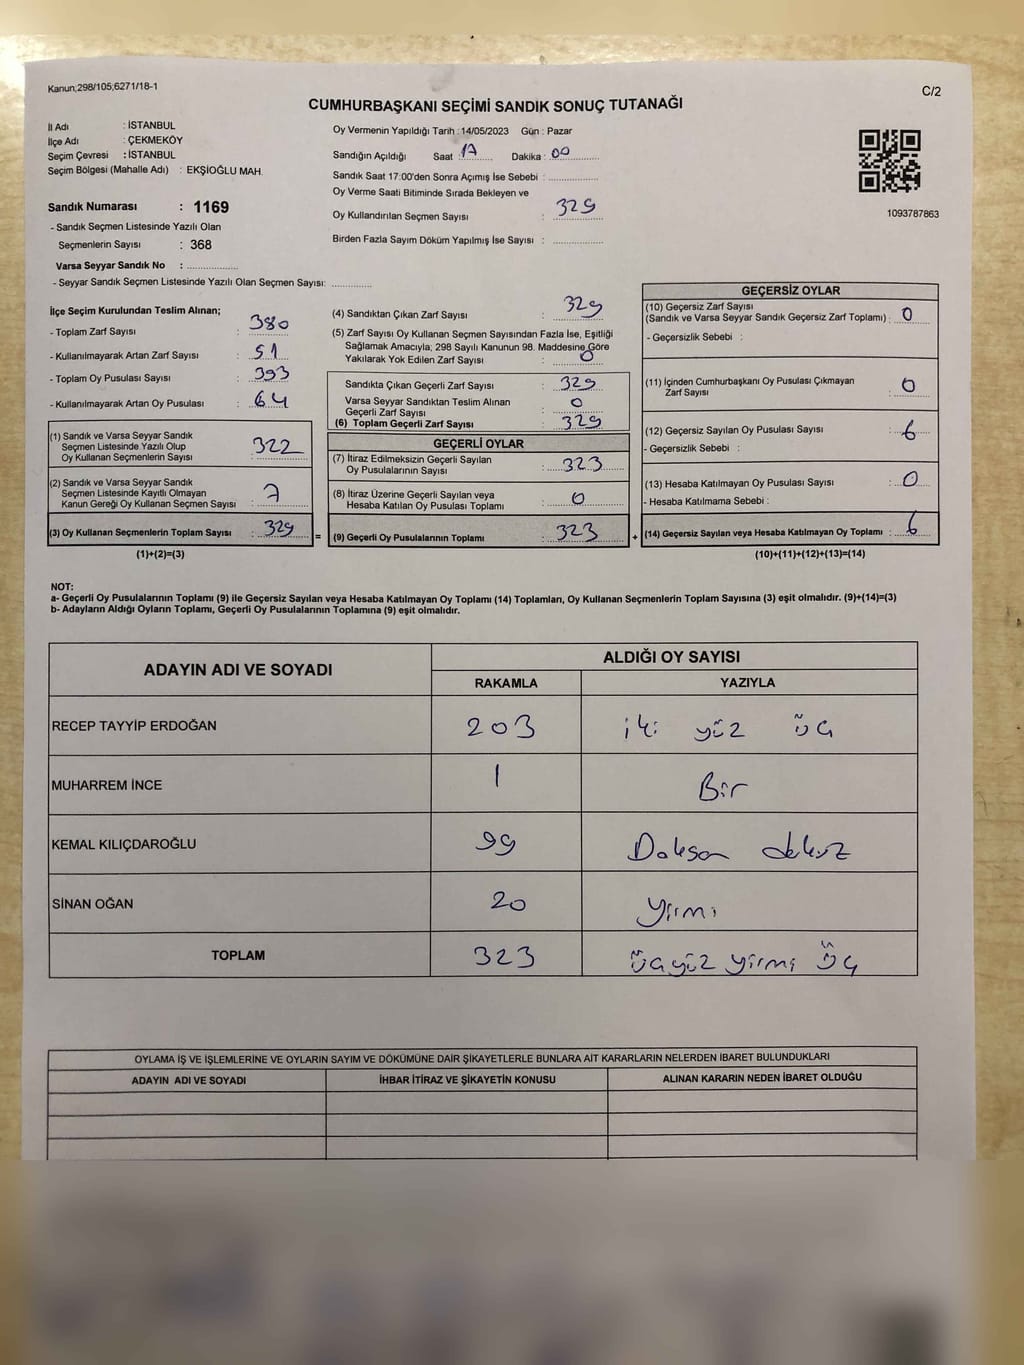 Kanun;298/105;6271/18-1
C/2
CUMHURBAŞKANI SEÇİMİ SANDIK SONUÇ TUTANAĞI
İl Adı : İSTANBUL
İlçe Adı : ÇEKMEKÖY
Seçim Çevresi : İSTANBUL
Seçim Bölgesi (Mahalle Adı) : EKŞİOĞLU MAH.
Sandık Numarası : 1169
- Sandık Seçmen Listesinde Yazılı Olan
Seçmenlerin Sayısı : 368
Varsa Seyyar Sandık No :
- Seyyar Sandık Seçmen Listesinde Yazılı Olan Seçmen Sayısı:
Oy Vermenin Yapıldığı Tarih : 14/05/2023 Gün : Pazar
Sandığın Açıldığı Saat : 17 Dakika : 00
Sandık Saat 17:00'den Sonra Açımış İse Sebebi :
Oy Verme Saati Bitiminde Sırada Bekleyen ve
Oy Kullandırılan Seçmen Sayısı : 329
Birden Fazla Sayım Döküm Yapılmış İse Sayısı :
1093787863
İlçe Seçim Kurulundan Teslim Alınan;
- Toplam Zarf Sayısı : 380
- Kullanılmayarak Artan Zarf Sayısı : 51
- Toplam Oy Pusulası Sayısı : 393
- Kullanılmayarak Artan Oy Pusulası : 64
(1) Sandık ve Varsa Seyyar Sandık
Seçmen Listesinde Yazılı Olup
Oy Kullanan Seçmenlerin Sayısı : 322
(2) Sandık ve Varsa Seyyar Sandık
Seçmen Listesinde Kayıtlı Olmayan
Kanun Gereği Oy Kullanan Seçmen Sayısı : 7
(3) Oy Kullanan Seçmenlerin Toplam Sayısı : 329
(1)+(2)=(3)
=
(4) Sandıktan Çıkan Zarf Sayısı : 329
(5) Zarf Sayısı Oy Kullanan Seçmen Sayısından Fazla İse, Eşitliği
Sağlamak Amacıyla; 298 Sayılı Kanunun 98. Maddesine Göre
Yakılarak Yok Edilen Zarf Sayısı : 0
Sandıkta Çıkan Geçerli Zarf Sayısı : 329
Varsa Seyyar Sandıktan Teslim Alınan
Geçerli Zarf Sayısı : 0
(6) Toplam Geçerli Zarf Sayısı : 329
GEÇERLİ OYLAR
(7) İtiraz Edilmeksizin Geçerli Sayılan
Oy Pusulalarının Sayısı : 323
(8) İtiraz Üzerine Geçerli Sayılan veya
Hesaba Katılan Oy Pusulası Toplamı : 0
(9) Geçerli Oy Pusulalarının Toplamı : 323
+
GEÇERSİZ OYLAR
(10) Geçersiz Zarf Sayısı
(Sandık ve Varsa Seyyar Sandık Geçersiz Zarf Toplamı) : 0
- Geçersizlik Sebebi :
(11) İçinden Cumhurbaşkanı Oy Pusulası Çıkmayan
Zarf Sayısı : 0
(12) Geçersiz Sayılan Oy Pusulası Sayısı : 6
- Geçersizlik Sebebi :
(13) Hesaba Katılmayan Oy Pusulası Sayısı : 0
- Hesaba Katılmama Sebebi :
(14) Geçersiz Sayılan veya Hesaba Katılmayan Oy Toplamı : 6
(10)+(11)+(12)+(13)=(14)
NOT:
a- Geçerli Oy Pusulalarının Toplamı (9) ile Geçersiz Sayılan veya Hesaba Katılmayan Oy Toplamı (14) Toplamları, Oy Kullanan Seçmenlerin Toplam Sayısına (3) eşit olmalıdır. (9)+(14)=(3)
b- Adayların Aldığı Oyların Toplamı, Geçerli Oy Pusulalarının Toplamına (9) eşit olmalıdır.
ADAYIN ADI VE SOYADI
ALDIĞI OY SAYISI
RAKAMLA YAZIYLA
RECEP TAYYİP ERDOĞAN 203 iki yüz üç
MUHARREM İNCE 1 Bir
KEMAL KILIÇDAROĞLU 99 Doksan dokuz
SİNAN OĞAN 20 Yirmi
TOPLAM 323 üçyüz yirmi üç
OYLAMA İŞ VE İŞLEMLERİNE VE OYLARIN SAYIM VE DÖKÜMÜNE DAİR ŞİKAYETLERLE BUNLARA AİT KARARLARIN NELERDEN İBARET BULUNDUKLARI
ADAYIN ADI VE SOYADI İHBAR İTİRAZ VE ŞİKAYETİN KONUSU ALINAN KARARIN NEDEN İBARET OLDUĞU